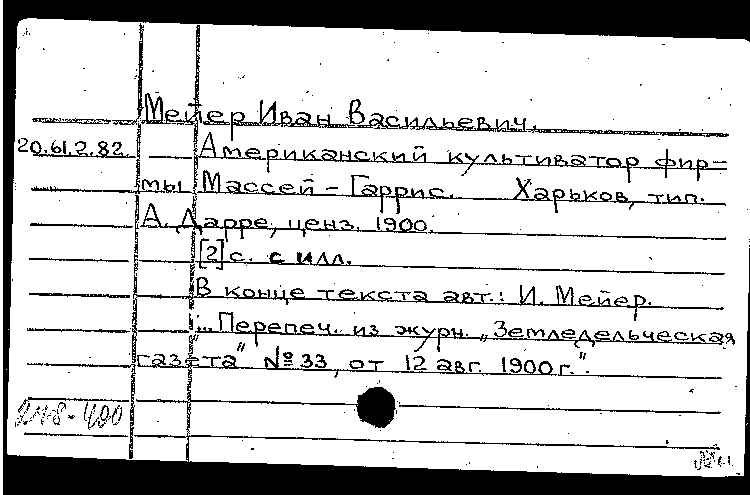 Мейер Иван Васильевич.
20.61.2.82. Американский культиватор фир-
мы Массей-Гаррис. Харьков, тип.
А. Дарре, ценз. 1900.
[2] с. с илл.
В конце текста авт.: И. Мейер.
"... Перепеч. из журн. „Земледельческая
газета" № 33, от 12 авг. 1900 г.".
248-400